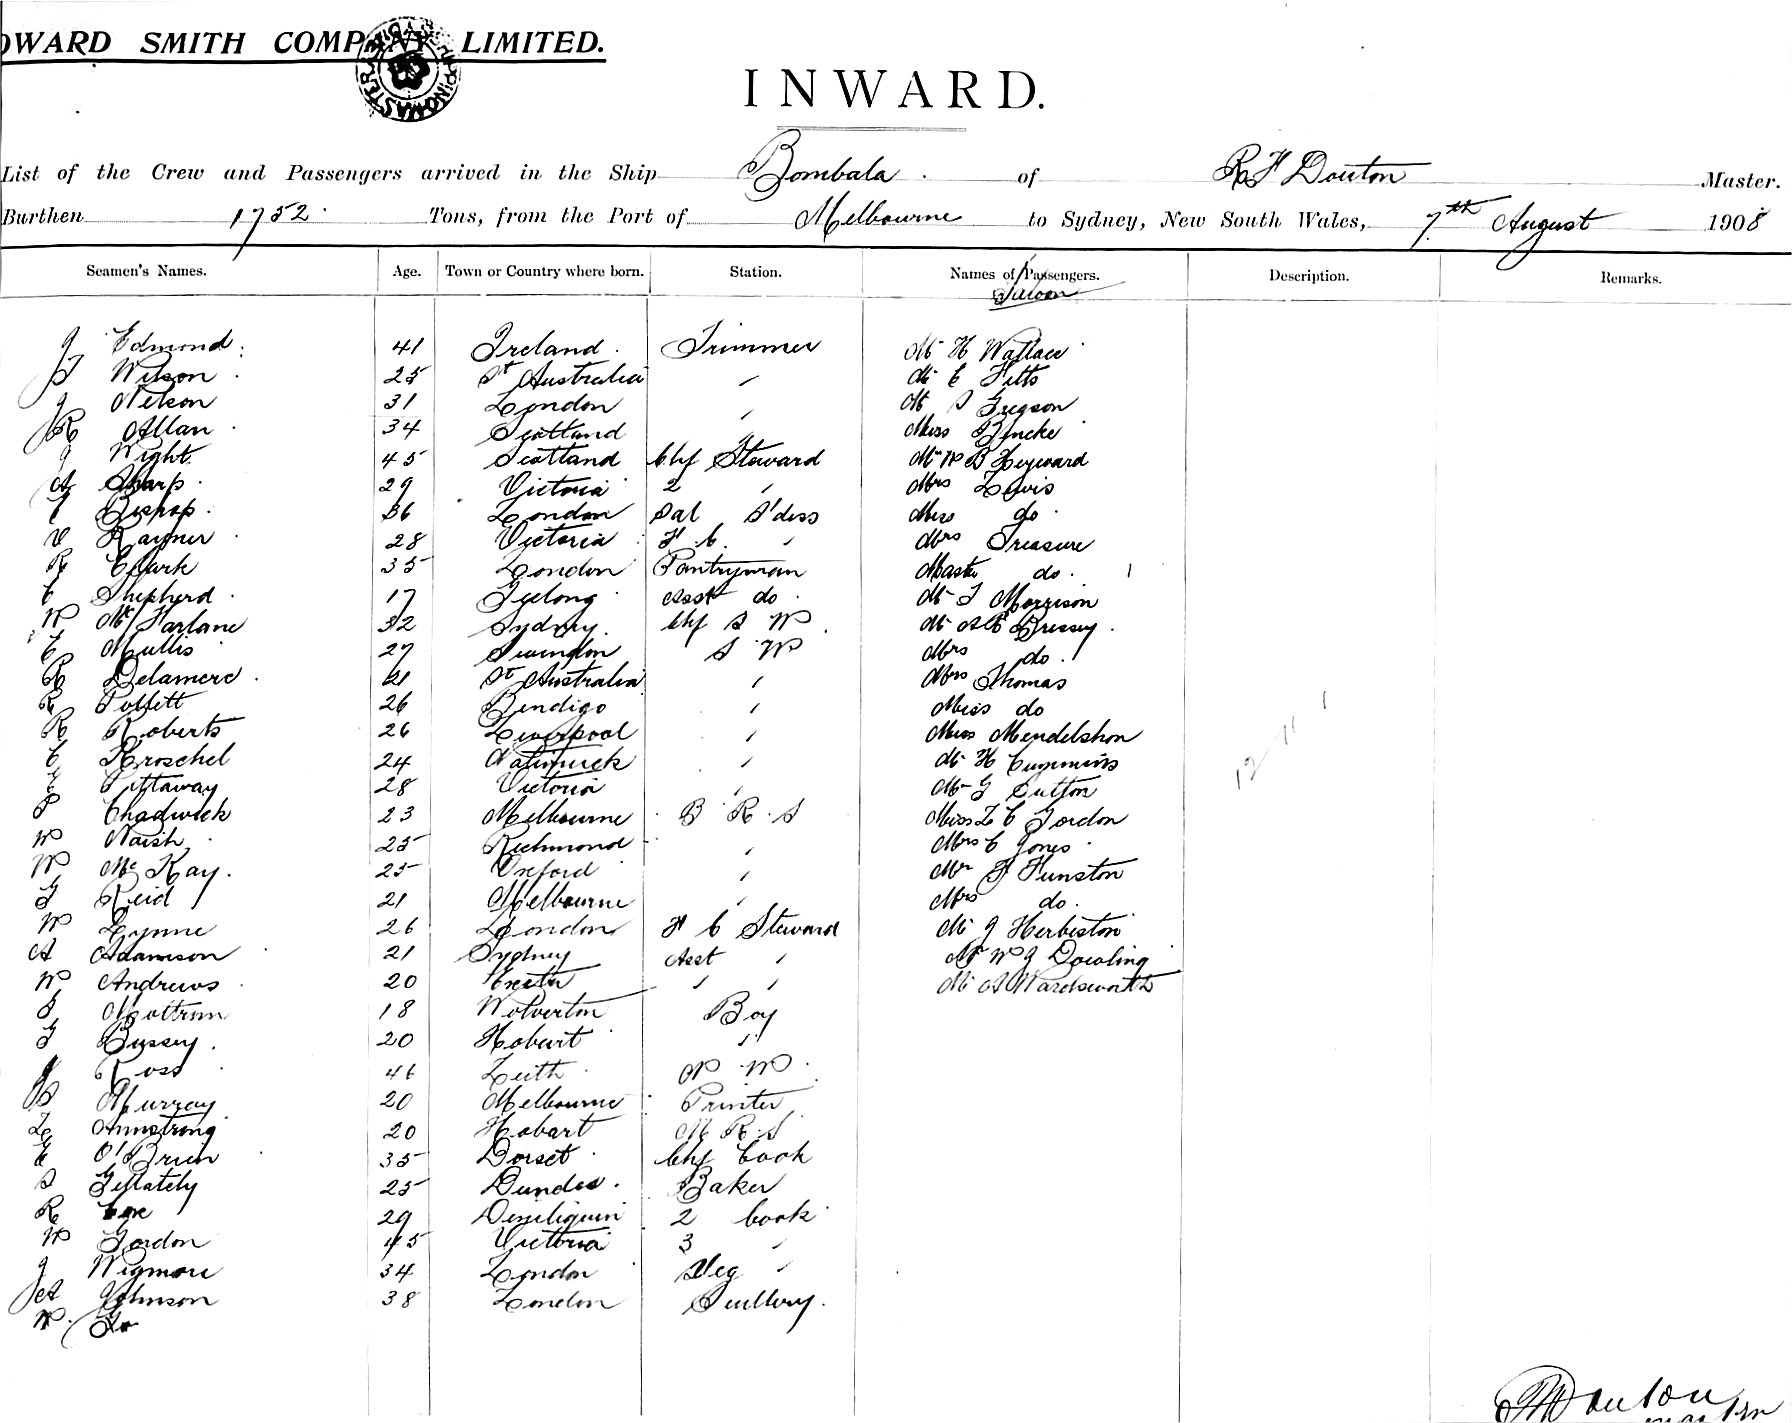 OWARD SMITH COMPANY LIMITED.
SHIPPING MASTER
INWARD.
List of the Crew and Passengers arrived in the Ship Bombala of R H Douton Master.
Burthen 1752 Tons, from the Port of Melbourne to Sydney, New South Wales, 7th August 1908
Seamen's Names. Age. Town or Country where born. Station. Names of Passengers. Description. Remarks.
Saloon
J Edmond 41 Ireland Trimmer Mr H Wallace
J Wilson 25 St Australia " Mr C Fitts
J Nelson 31 London " Mr S Gregson
R Allan 34 Scotland " Miss Bencke
J Wight 45 Scotland Chf Steward Mr W B Heyward
A Sharp 29 Victoria 2 " Mrs Lewis
E Bishop 36 London Sal S'dess Miss do
V Rayner 28 Victoria F C " Mrs Treasure
R Clark 35 London Pantryman Master do 1
C Shepherd 17 Geelong Asst do Mr T Morrison
W McFarlane 32 Sydney Chf S W Mr A E Bressey
E Mullis 27 Swindon S W Mrs do
R Delamere 21 St Australia " Mrs Thomas
R Pollett 26 Bendigo " Miss do
R Roberts 26 Liverpool " Miss Mendelshon
C Kroschel 24 Natimuck " Mr H Cummins
E Pittaway 28 Victoria " Mr G Sutton
P Chadwick 23 Melbourne B R S Miss L C Gordon
W Naish 25 Richmond " Mrs C Jones
W McKay 25 Oxford " Mr F Funston
G Reid 21 Melbourne " Mrs do
W Lynne 26 London F C Steward Mr J Herbiston
A Adamson 21 Sydney Asst " Mr W J Dowling
W Andrews 20 Exeter " " Mr A Wardsworth
S Mottram 18 Wolverton Boy
G Bussey 20 Hobart "
J Ross 46 Leith N W
B Murray 20 Melbourne Printer
L Armstrong 20 Hobart M R S
E O'Brien 35 Dorset Chf Cook
S Gellately 25 Dundee Baker
R Coe 29 Deniliquin 2 Cook
W Gordon 45 Victoria 3 "
J Wigmore 34 London Veg "
A Johnson 38 London Scullery
W
12 11 1
R H Douton
Master